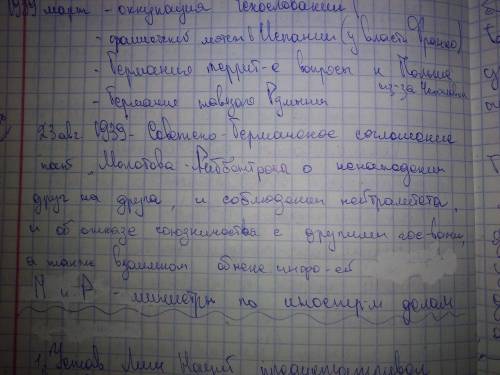 1939 март - оккупация Чехословакии
- фашистский мятеж в Испании (у власти Франко)
- Германия террит-е вопросы к Польше
из-за
- Германие Румынии
23 авг. 1939 - Советско-Германское соглашение
пакт "Молотова-Риббентропа о ненападении
друг на друга, и соблюдении нейтралитета,
и об отказе союзничества с другими гос-вами,
а также взаимном обмене инфо-ей
М и Р - министры по иностр-м делам
1) Устав Лиги Наций